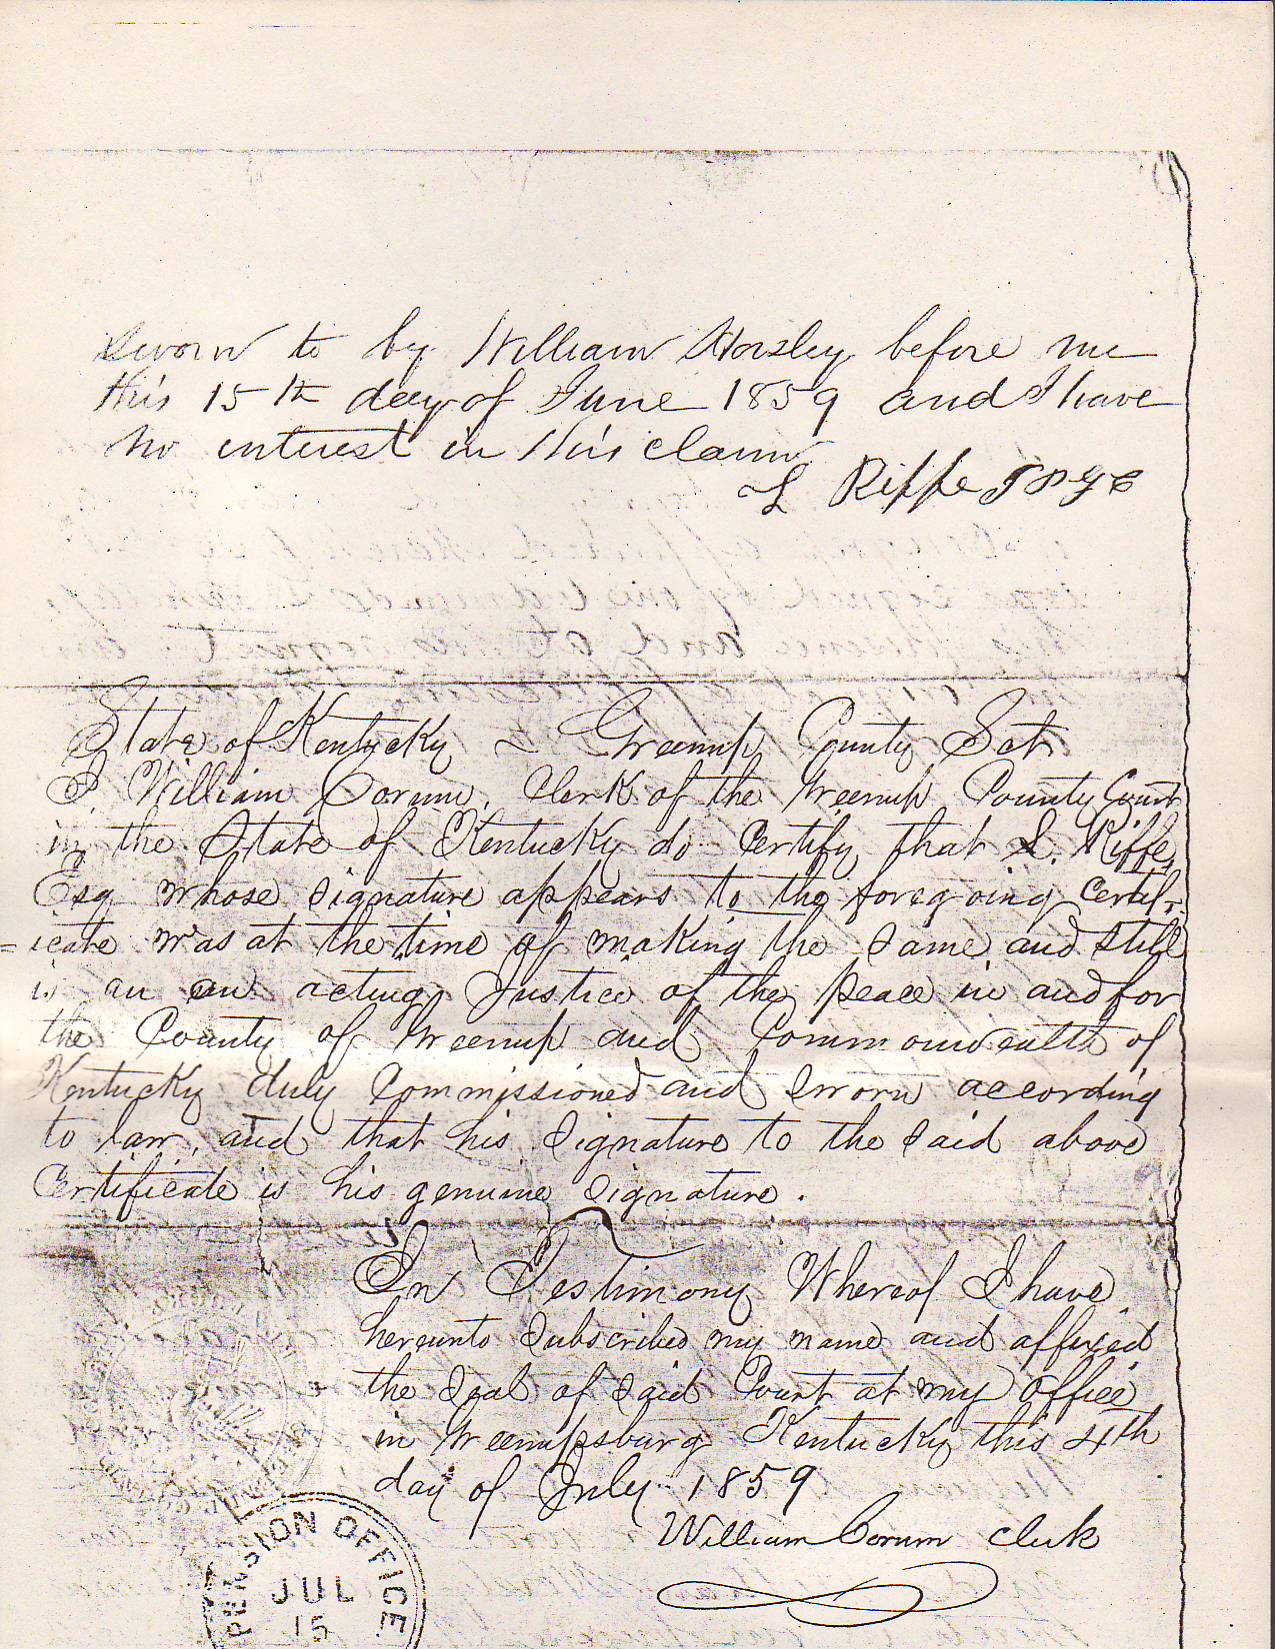 Sworn to by William Worsley before me
this 15th day of June 1859 and I have
no interest in this claim
L Riffe J P G C
State of Kentucky ~ Greenup County Sct
I William Corum, Clerk of the Greenup County Court
in the State of Kentucky do certify that L. Riffe,
Esq whose signature appears to the foregoing certif-
=icate was at the time of making the same and still
is an an acting Justice of the peace in and for
the County of Greenup and Commonwealth of
Kentucky duly Commissioned and sworn according
to law, and that his signature to the said above
certificate is his genuine signature.
In Testimony Whereof I have
hereunto subscribed my name and affixed
the seal of said Court at my office
in Greenupsburg Kentucky this 4th
day of July 1859
William Corum Clerk
PENSION OFFICE
JUL
15